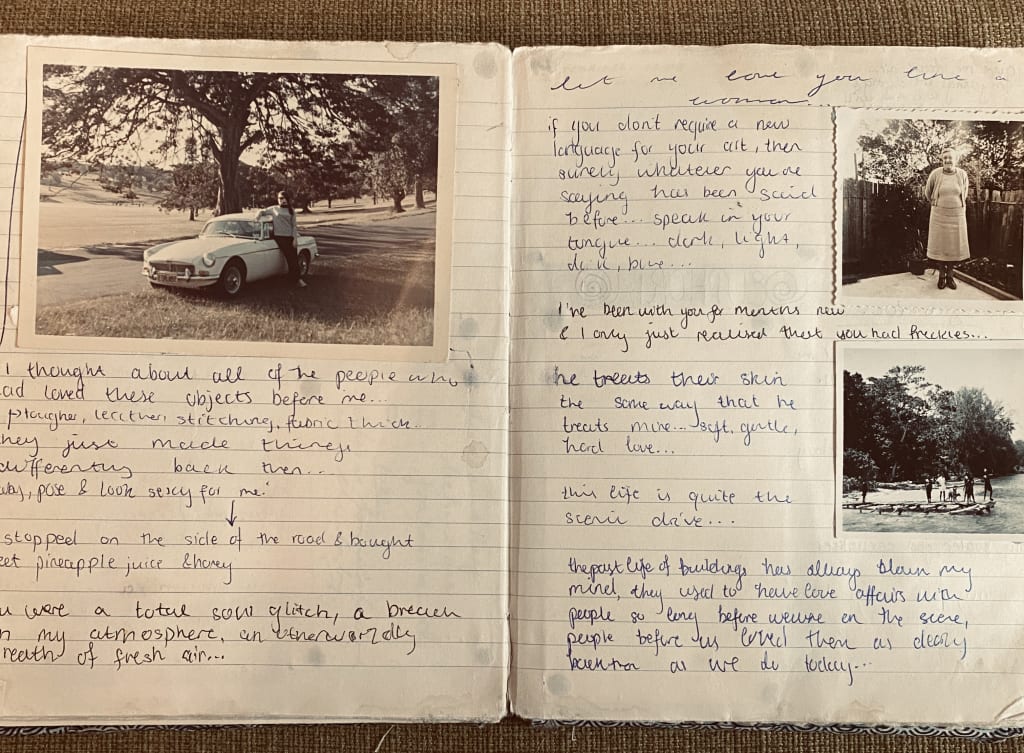 i thought about all of the people who
ad loved these objects before me...
plougher, leather stitching, fabric thick..
hey just made things
differently back then...
pose & look sexy for me."
stopped on the side of the road & bought
eet pineapple juice & honey
u were a total soul glitch, a breach
n my atmosphere, an otherworldly
reath of fresh air...
let me love you like a
woman...
if you don't require a new
language for your art, then
surely, whatever you're
saying has been said
before... speak in your
tongue... dark, light,
blue...
I've been with you for months now
& I only just realised that you had freckles...
he treats their skin
the same way that he
treats mine... soft, gentle,
hard love...
this life is quite the
scenic drive...
the past life of buildings has always blown my
mind, they used to have love affairs with
people so long before we were on the scene,
people before us loved them as dearly
back then as we do today...